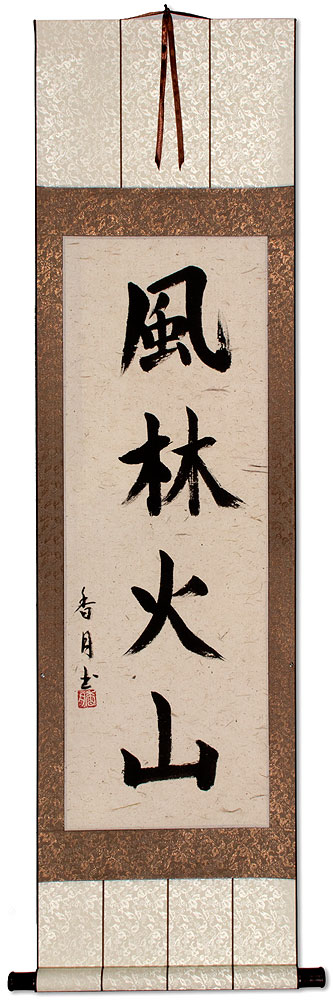 風林火山
香月書